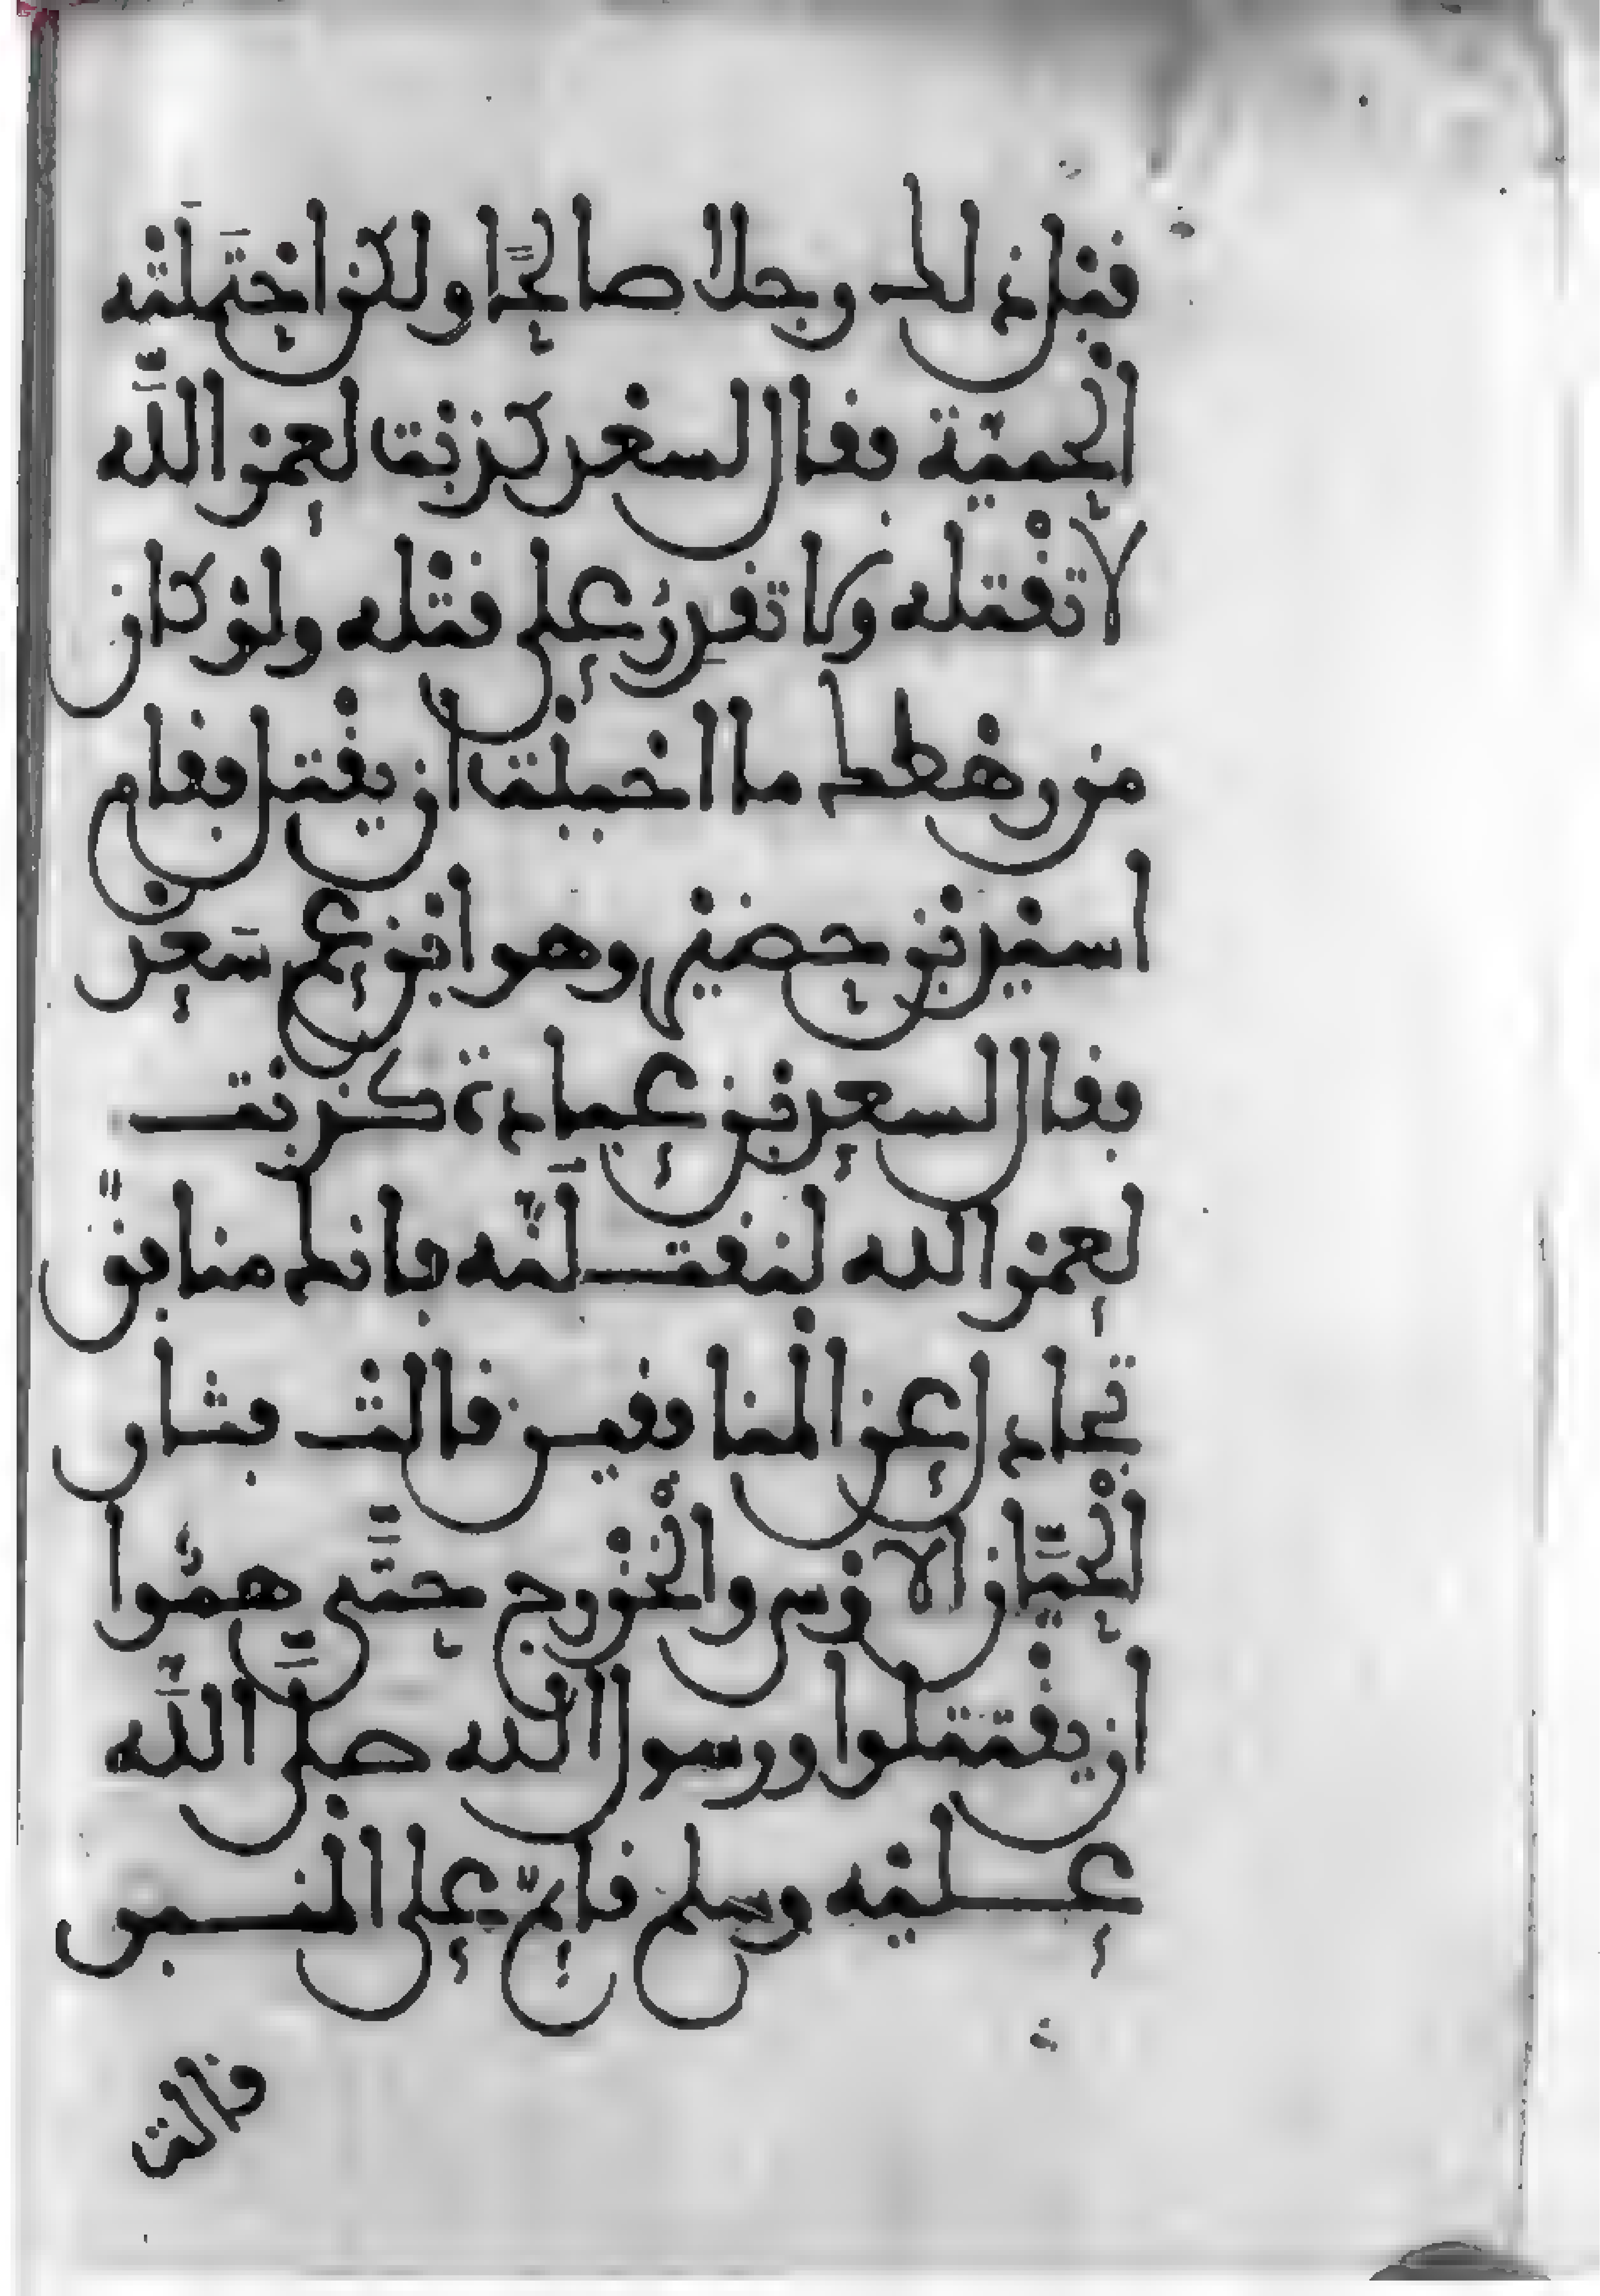 قبل ذلك رجلا صالحا ولكن احتملته
الحمية فقال لسعد كذبت لعمر الله
لا تقتله ولا تقدر على قتله ولو كان
من رهطك ما احببت ان يقتل فقام
اسيد بن حضير وهو ابن عم سعد
فقال لسعد بن عبادة كذبت
لعمر الله لنقتلنه فانك منافق
تجادل عن المنافقين قالت فثار
الحيان الاوس والخزرج حتى هموا
ان يقتتلوا ورسول الله صلى الله
عليه وسلم قايم على المنبر
قالت